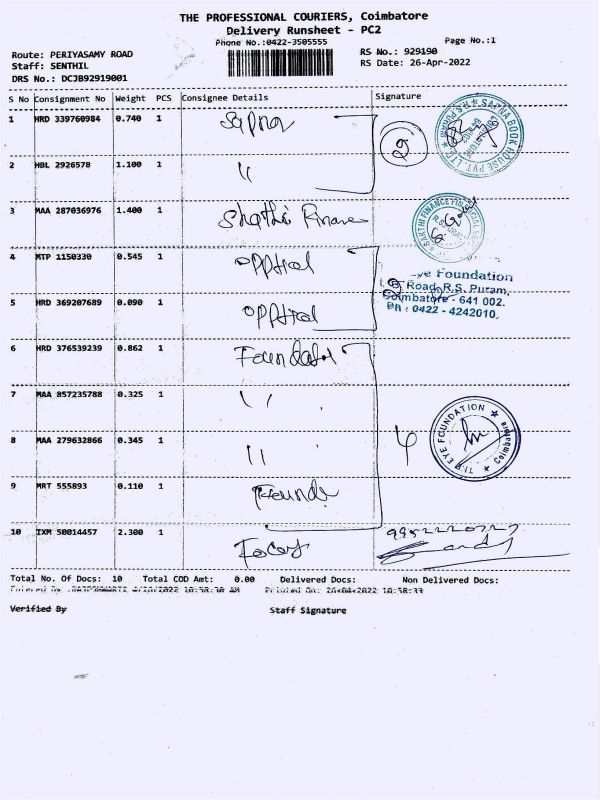 THE PROFESSIONAL COURIERS, Coimbatore
Delivery Runsheet - PC2
Phone No.:0422-3505555
Page No.:1
Route: PERIYASAMY ROAD
RS No.: 929190
Staff: SENTHIL
RS Date: 26-Apr-2022
DRS No.: DCJB92919001
S No Consignment No Weight PCS Consignee Details Signature
1 HRD 339760984 0.740 1 Sapna
2
2 HBL 2926578 1.100 1 "
SAPNA BOOK HOUSE PVT. LTD. R.S PURAM
3 MAA 287036976 1.400 1 Shathi Finance
SAKTHI FINANCE
4 MTP 1150330 0.545 1 opptical
2
eye Foundation
Road, R.S. Puram,
Coimbatore - 641 002.
PH : 0422 - 4242010.
5 HRD 369207689 0.090 1 opptical
6 HRD 376539239 0.862 1 Foundation
7 MAA 857235788 0.325 1 "
8 MAA 279632866 0.345 1 "
4
EYE FOUNDATION Coimbatore
9 MRT 555893 0.110 1 Founda
10 TXM 50014457 2.300 1
Total No. Of Docs: 10 Total COD Amt: 0.00 Delivered Docs: Non Delivered Docs:
Printed On: 26-04-2022 10:58:33
Verified By
Staff Signature